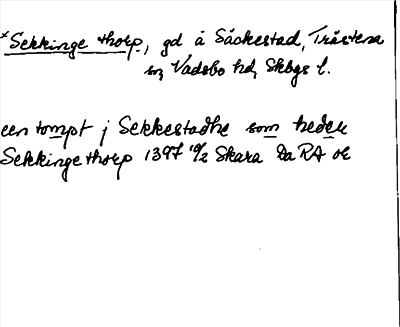 *Sekkinge thorp, gd å Säckestad, Trästena
sn, Vadsbo hd, Skbgs l.
een tompt j Sekkestadhe som heder
Sekkinge thorp 1397 10/2 Skara Da RA or